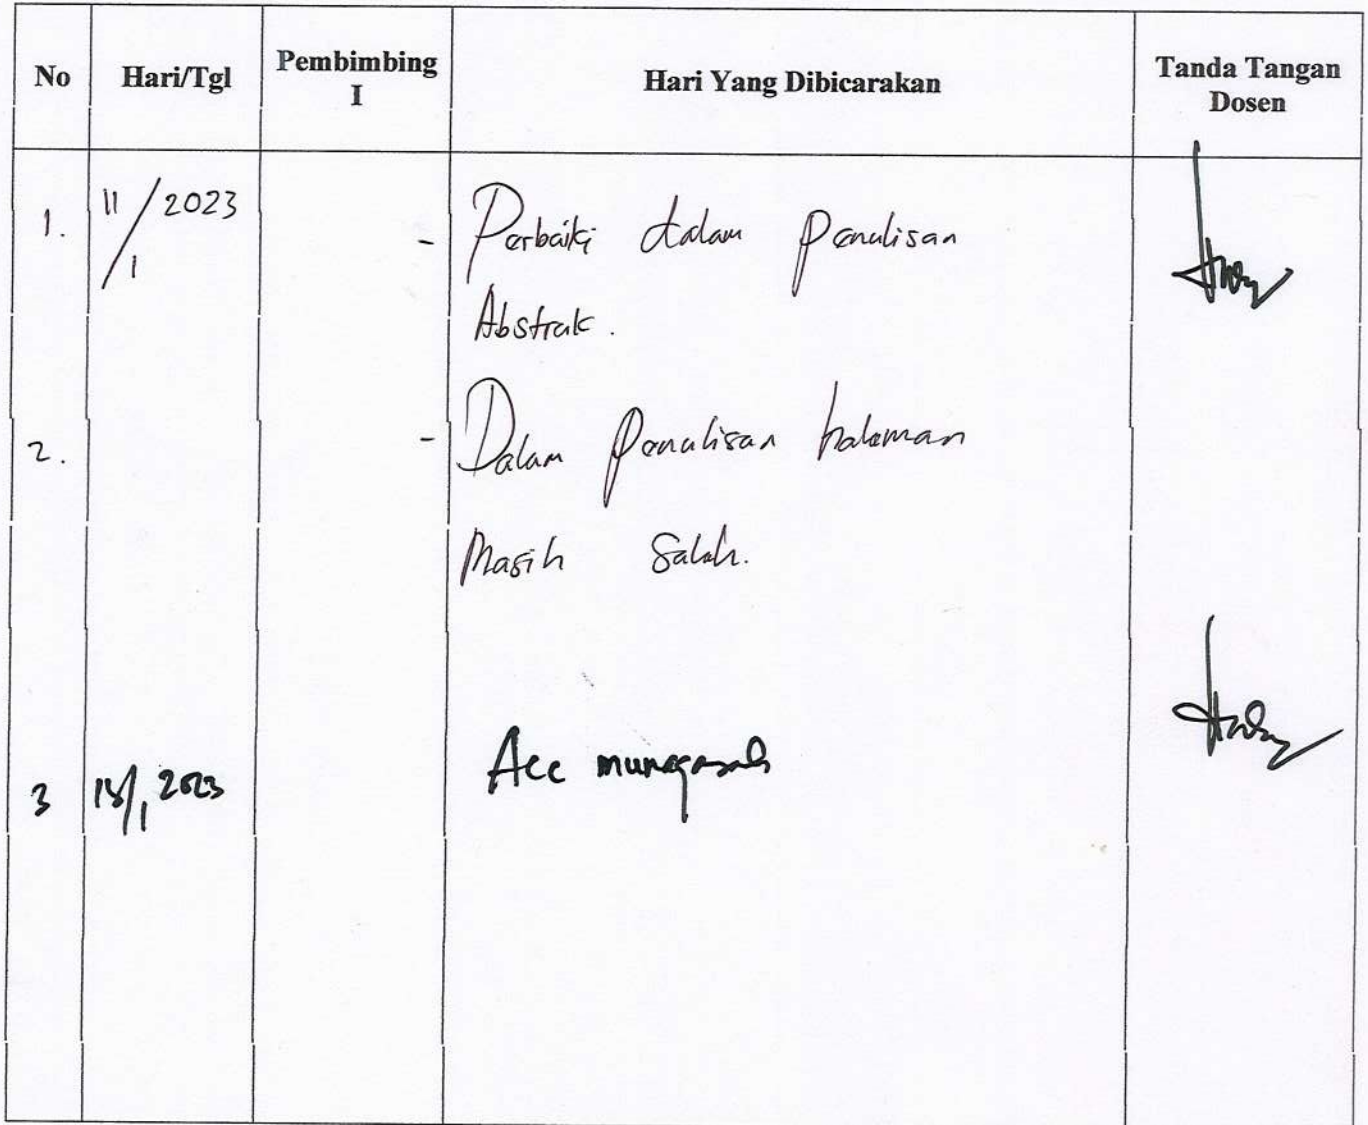 No Hari/Tgl Pembimbing I Hari Yang Dibicarakan Tanda Tangan Dosen
1. 11/1 2023 - Perbaiki dalam penulisan
Abstrak.
2. - Dalam Penulisan halaman
Masih Salah.
3 /1 2023 Acc munaqasah